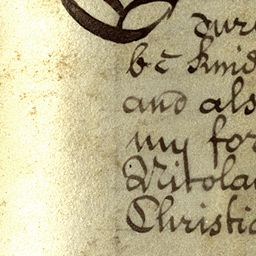 our
be kind
and als
my for
Nicola
Christi